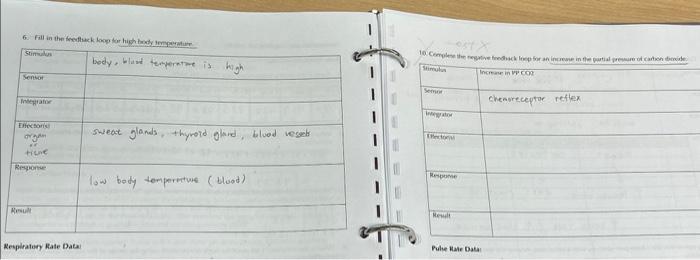 6. Fill in the feedback loop for high body temperature.
Stimulus
body, blood temperature is high
Sensor
Integrator
Effector(s)
organ
or
tissue
sweat glands, thyroid gland, blood vessels
Response
low body temperature (blood)
Result
Respiratory Rate Data:
10. Complete the negative feedback loop for an increase in the partial pressure of carbon dioxide.
Stimulus
Increase in PP CO2
Sensor
chemoreceptor reflex
Integrator
Effector(s)
Response
Result
Pulse Rate Data: